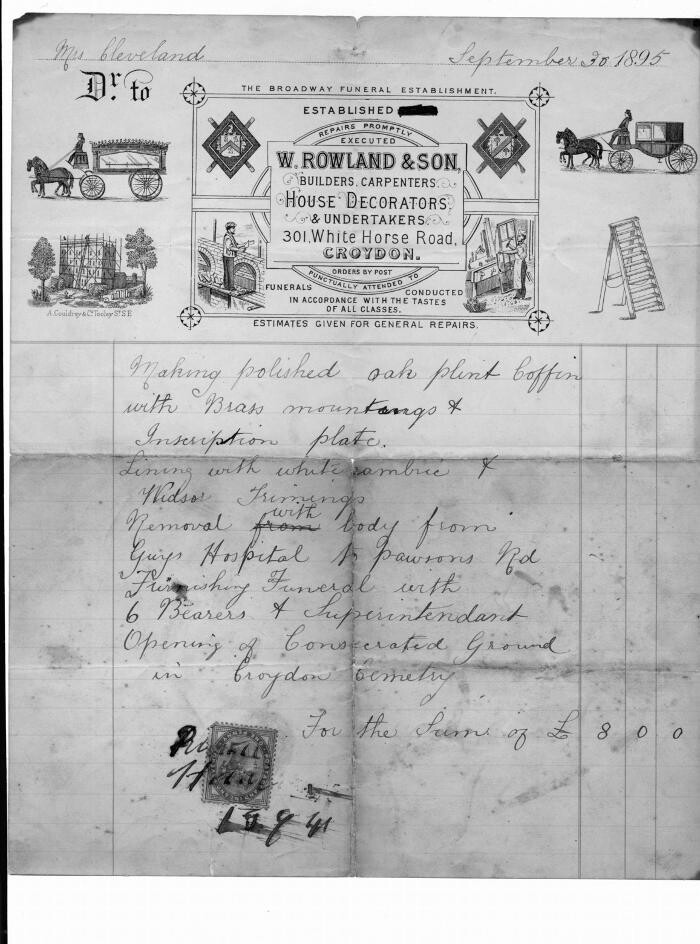 Mrs Cleveland
September 30 1895
Dr. to
THE BROADWAY FUNERAL ESTABLISHMENT.
ESTABLISHED
REPAIRS PROMPTLY
EXECUTED
W. ROWLAND & SON,
BUILDERS, CARPENTERS,
HOUSE DECORATORS,
& UNDERTAKERS,
301, White Horse Road,
CROYDON.
ORDERS BY POST
PUNCTUALLY ATTENDED TO
FUNERALS CONDUCTED
IN ACCORDANCE WITH THE TASTES
OF ALL CLASSES.
ESTIMATES GIVEN FOR GENERAL REPAIRS.
A. Gouldrey & Co. Tooley St. S E
Making polished oak plint Coffin
with Brass mountangs &
Inscription plate.
Lining with white cambric &
Widsor Trimings
Removal from with body from
Guys Hospital to pawsons Rd
Furnishing Funeral with
6 Bearers & Superintendant
Opening of Consecrated Ground
in Croydon Cemetry
For the Sum of £ 8 0 0